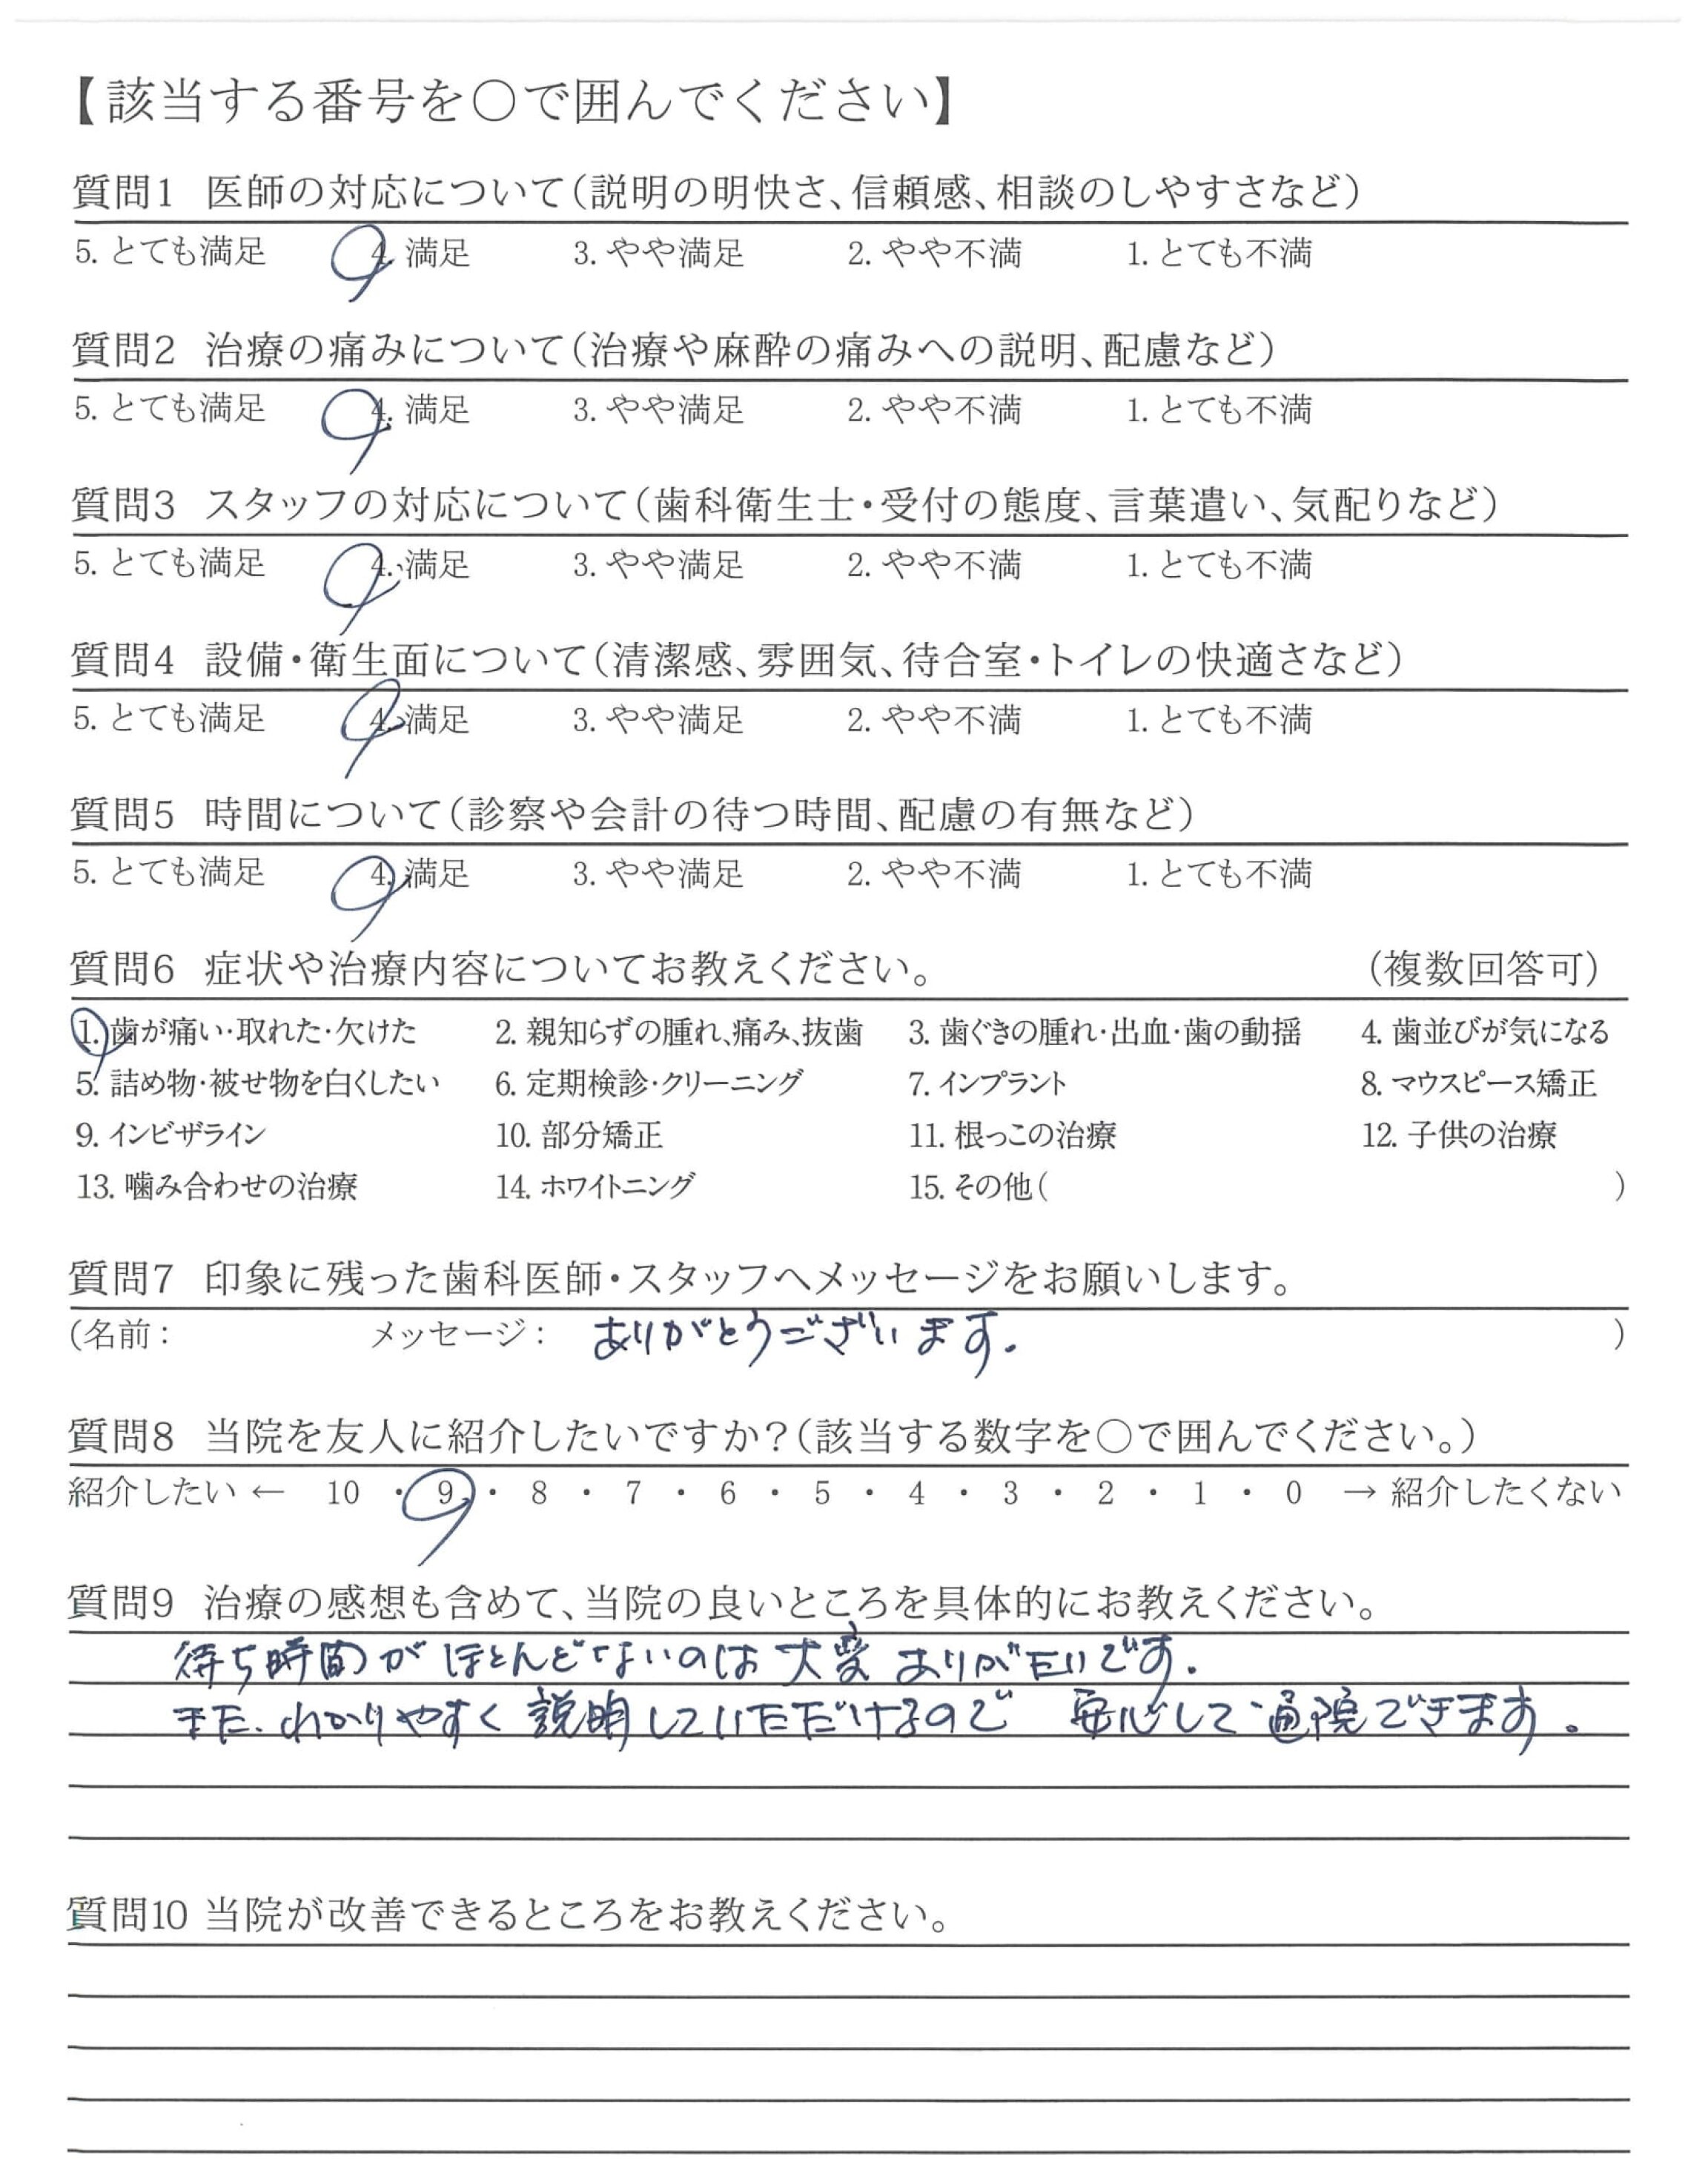 【該当する番号を○で囲んでください】
質問1 医師の対応について(説明の明快さ、信頼感、相談のしやすさなど)
5. とても満足 4. 満足 3. やや満足 2. やや不満 1. とても不満
質問2 治療の痛みについて(治療や麻酔の痛みへの説明、配慮など)
5. とても満足 4. 満足 3. やや満足 2. やや不満 1. とても不満
質問3 スタッフの対応について(歯科衛生士・受付の態度、言葉遣い、気配りなど)
5. とても満足 4. 満足 3. やや満足 2. やや不満 1. とても不満
質問4 設備・衛生面について(清潔感、雰囲気、待合室・トイレの快適さなど)
5. とても満足 4. 満足 3. やや満足 2. やや不満 1. とても不満
質問5 時間について(診察や会計の待つ時間、配慮の有無など)
5. とても満足 4. 満足 3. やや満足 2. やや不満 1. とても不満
質問6 症状や治療内容についてお教えください。 (複数回答可)
1. 歯が痛い・取れた・欠けた 2. 親知らずの腫れ、痛み、抜歯 3. 歯ぐきの腫れ・出血・歯の動揺 4. 歯並びが気になる
5. 詰め物・被せ物を白くしたい 6. 定期検診・クリーニング 7. インプラント 8. マウスピース矯正
9. インビザライン 10. 部分矯正 11. 根っこの治療 12. 子供の治療
13. 噛み合わせの治療 14. ホワイトニング 15. その他( )
質問7 印象に残った歯科医師・スタッフへメッセージをお願いします。
(名前: メッセージ: ありがとうございます。 )
質問8 当院を友人に紹介したいですか?(該当する数字を○で囲んでください。)
紹介したい ← 10 ・ 9 ・ 8 ・ 7 ・ 6 ・ 5 ・ 4 ・ 3 ・ 2 ・ 1 ・ 0 → 紹介したくない
質問9 治療の感想も含めて、当院の良いところを具体的にお教えください。
待ち時間がほとんどないのは大変ありがたいです。
また、わかりやすく説明していただけるので 安心して通院できます。
質問10 当院が改善できるところをお教えください。